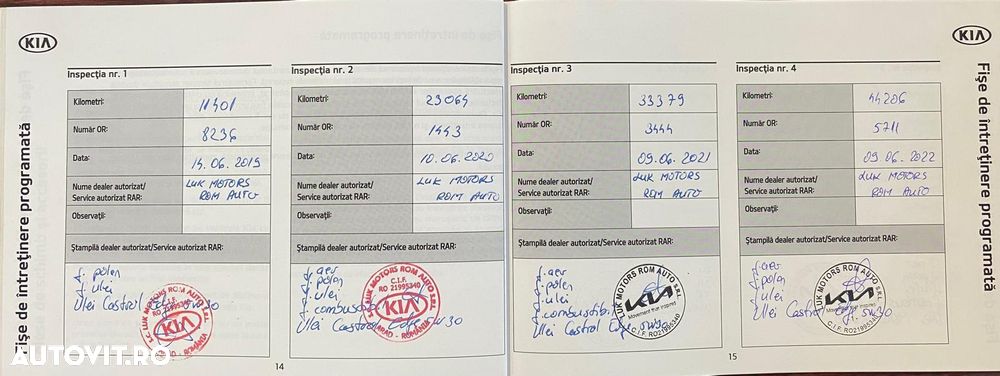 KIA
Fișe de întreținere programată
Inspecția nr. 1
Kilometri: 11401
Număr OR: 8236
Data: 14.06.2019
Nume dealer autorizat/ LUK MOTORS
Service autorizat RAR: ROM AUTO
Observații:
Ștampilă dealer autorizat/Service autorizat RAR:
f. polen
f. ulei
Ulei Castrol 5w30
KIA
Inspecția nr. 2
Kilometri: 23064
Număr OR: 1443
Data: 10.06.2020
Nume dealer autorizat/ LUK MOTORS
Service autorizat RAR: ROM AUTO
Observații:
Ștampilă dealer autorizat/Service autorizat RAR:
f. aer
f. polen
f. ulei
f. combustibil
Ulei Castrol 5w30
S.C. LUK MOTORS ROM AUTO S.R.L.
C.I.F.
RO 21995340
KIA
ARAD - ROMÂNIA
14
Inspecția nr. 3
Kilometri: 33379
Număr OR: 3444
Data: 09.06.2021
Nume dealer autorizat/ LUK MOTORS
Service autorizat RAR: ROM AUTO
Observații:
Ștampilă dealer autorizat/Service autorizat RAR:
f. aer
f. polen
f. ulei
f. combustibil
Ulei Castrol 5w30
LUK MOTORS ROM AUTO S.R.L.
KIA
Movement that inspires
C.I.F. RO21995340
Inspecția nr. 4
Kilometri: 44206
Număr OR: 5711
Data: 09.06.2022
Nume dealer autorizat/ LUK MOTORS
Service autorizat RAR: ROM AUTO
Observații:
Ștampilă dealer autorizat/Service autorizat RAR:
f. aer
f. polen
f. ulei
Ulei Castrol 5w30
LUK MOTORS ROM AUTO S.R.L.
KIA
Movement that inspires
C.I.F. RO21995340
15
KIA
Fișe de întreținere programată
AUTOVIT.RO